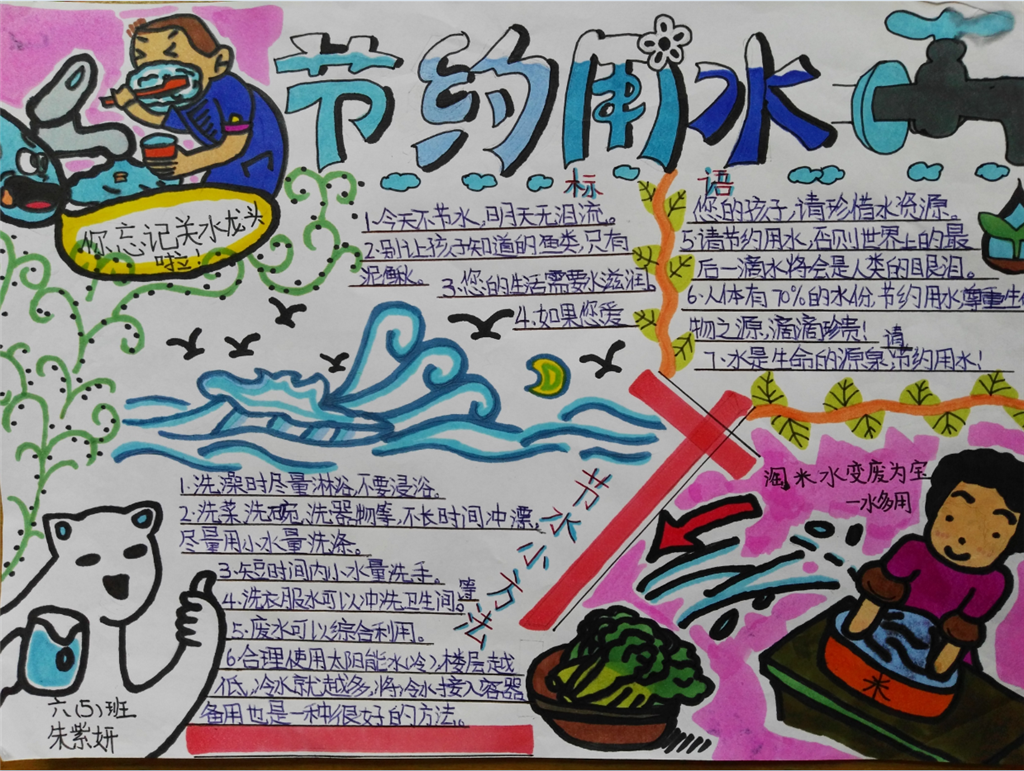 节约用水
你忘记关水龙头
啦！
标语
1.今天不节水,明天无泪流。
2.别让孩子知道的鱼类,只有
泥鳅。
3.您的生活需要水滋润。
4.如果您爱
您的孩子,请珍惜水资源。
5.请节约用水,否则世界上的最
后一滴水将会是人类的眼泪。
6.人体有70%的水份.节约用水,尊重生
物之源,滴滴珍贵!
7.水是生命的源泉.请节约用水!
节水小方法
1.洗澡时尽量淋浴,不要浸浴。
2.洗菜、洗碗、洗器物等,不长时间冲漂,
尽量用小水量洗涤。
3.短时间内小水量洗手。
4.洗衣服水可以冲洗卫生间等。
5.废水可以综合利用。
6.合理使用太阳能水(冷),楼层越
低,冷水就越多,将冷水接入容器
备用也是一种很好的方法。
淘米水变废为宝
一水多用
米
六(5)班
朱紫妍